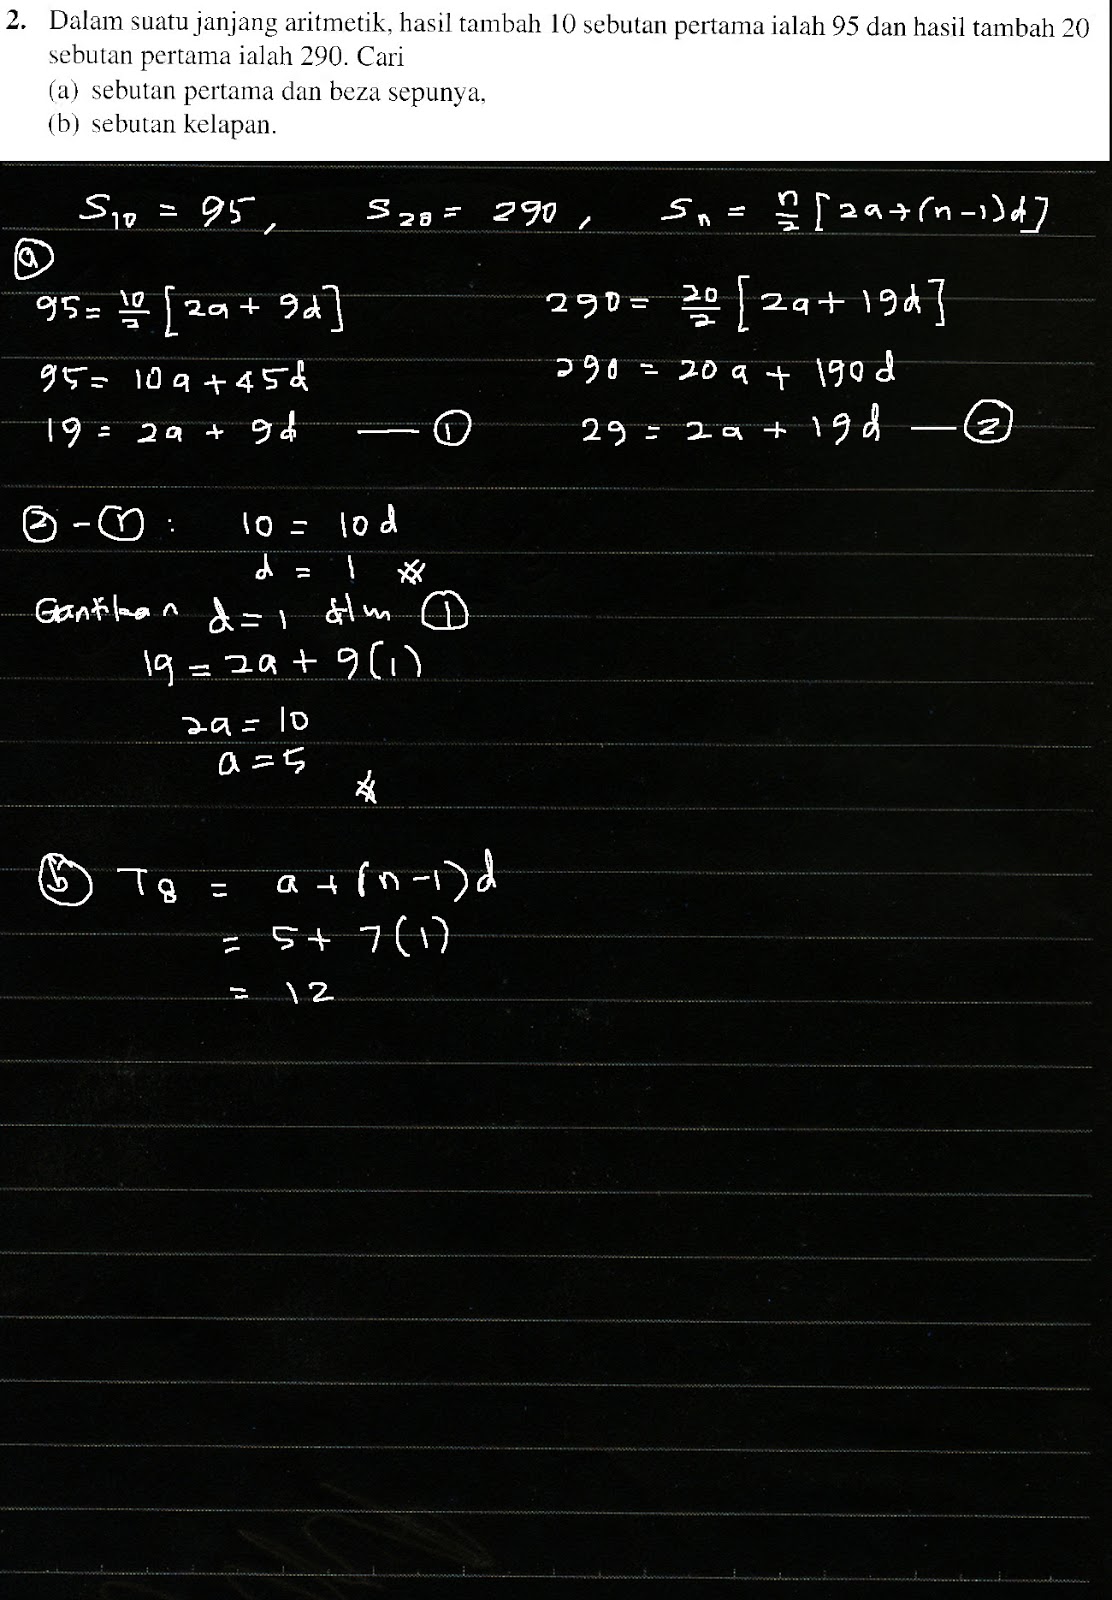 2. Dalam suatu janjang aritmetik, hasil tambah 10 sebutan pertama ialah 95 dan hasil tambah 20
sebutan pertama ialah 290. Cari
(a) sebutan pertama dan beza sepunya,
(b) sebutan kelapan.
S₁₀ = 95, S₂₀ = 290, Sₙ = n/2 [2a+(n-1)d]
ⓐ
95 = 10/2 [2a + 9d]
290 = 20/2 [2a + 19d]
95 = 10a + 45d
290 = 20a + 190d
19 = 2a + 9d — ①
29 = 2a + 19d — ②
② - ① : 10 = 10d
d = 1 ※
Gantikan d = 1 dlm ①
19 = 2a + 9(1)
2a = 10
a = 5
※
ⓑ T₈ = a + (n-1)d
= 5 + 7(1)
= 12